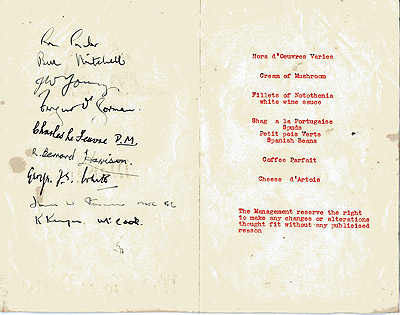 Bill Mitchell
Young
O'Gorman
Charles Le Feuvre P.M.
R. Bernard Harrison
White
K Kenyon
Hors d'Oeuvres Varies
Cream of Mushroom
Fillets of Notothenia
white wine sauce
Shag a la Portugaise
Spuds
Petit pois Verts
Spanish Beans
Coffee Parfait
Cheese d'Artois
The Management reserve the right
to make any changes or alterations
thought fit without any publicised
reason